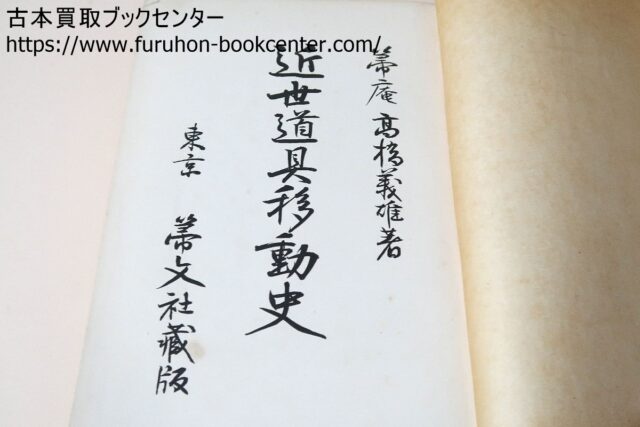 古本買取ブックセンター
https://www.furuhon-bookcenter.com/
箒庵 高橋義雄著
近世道具移動史
東京 箒文社蔵版